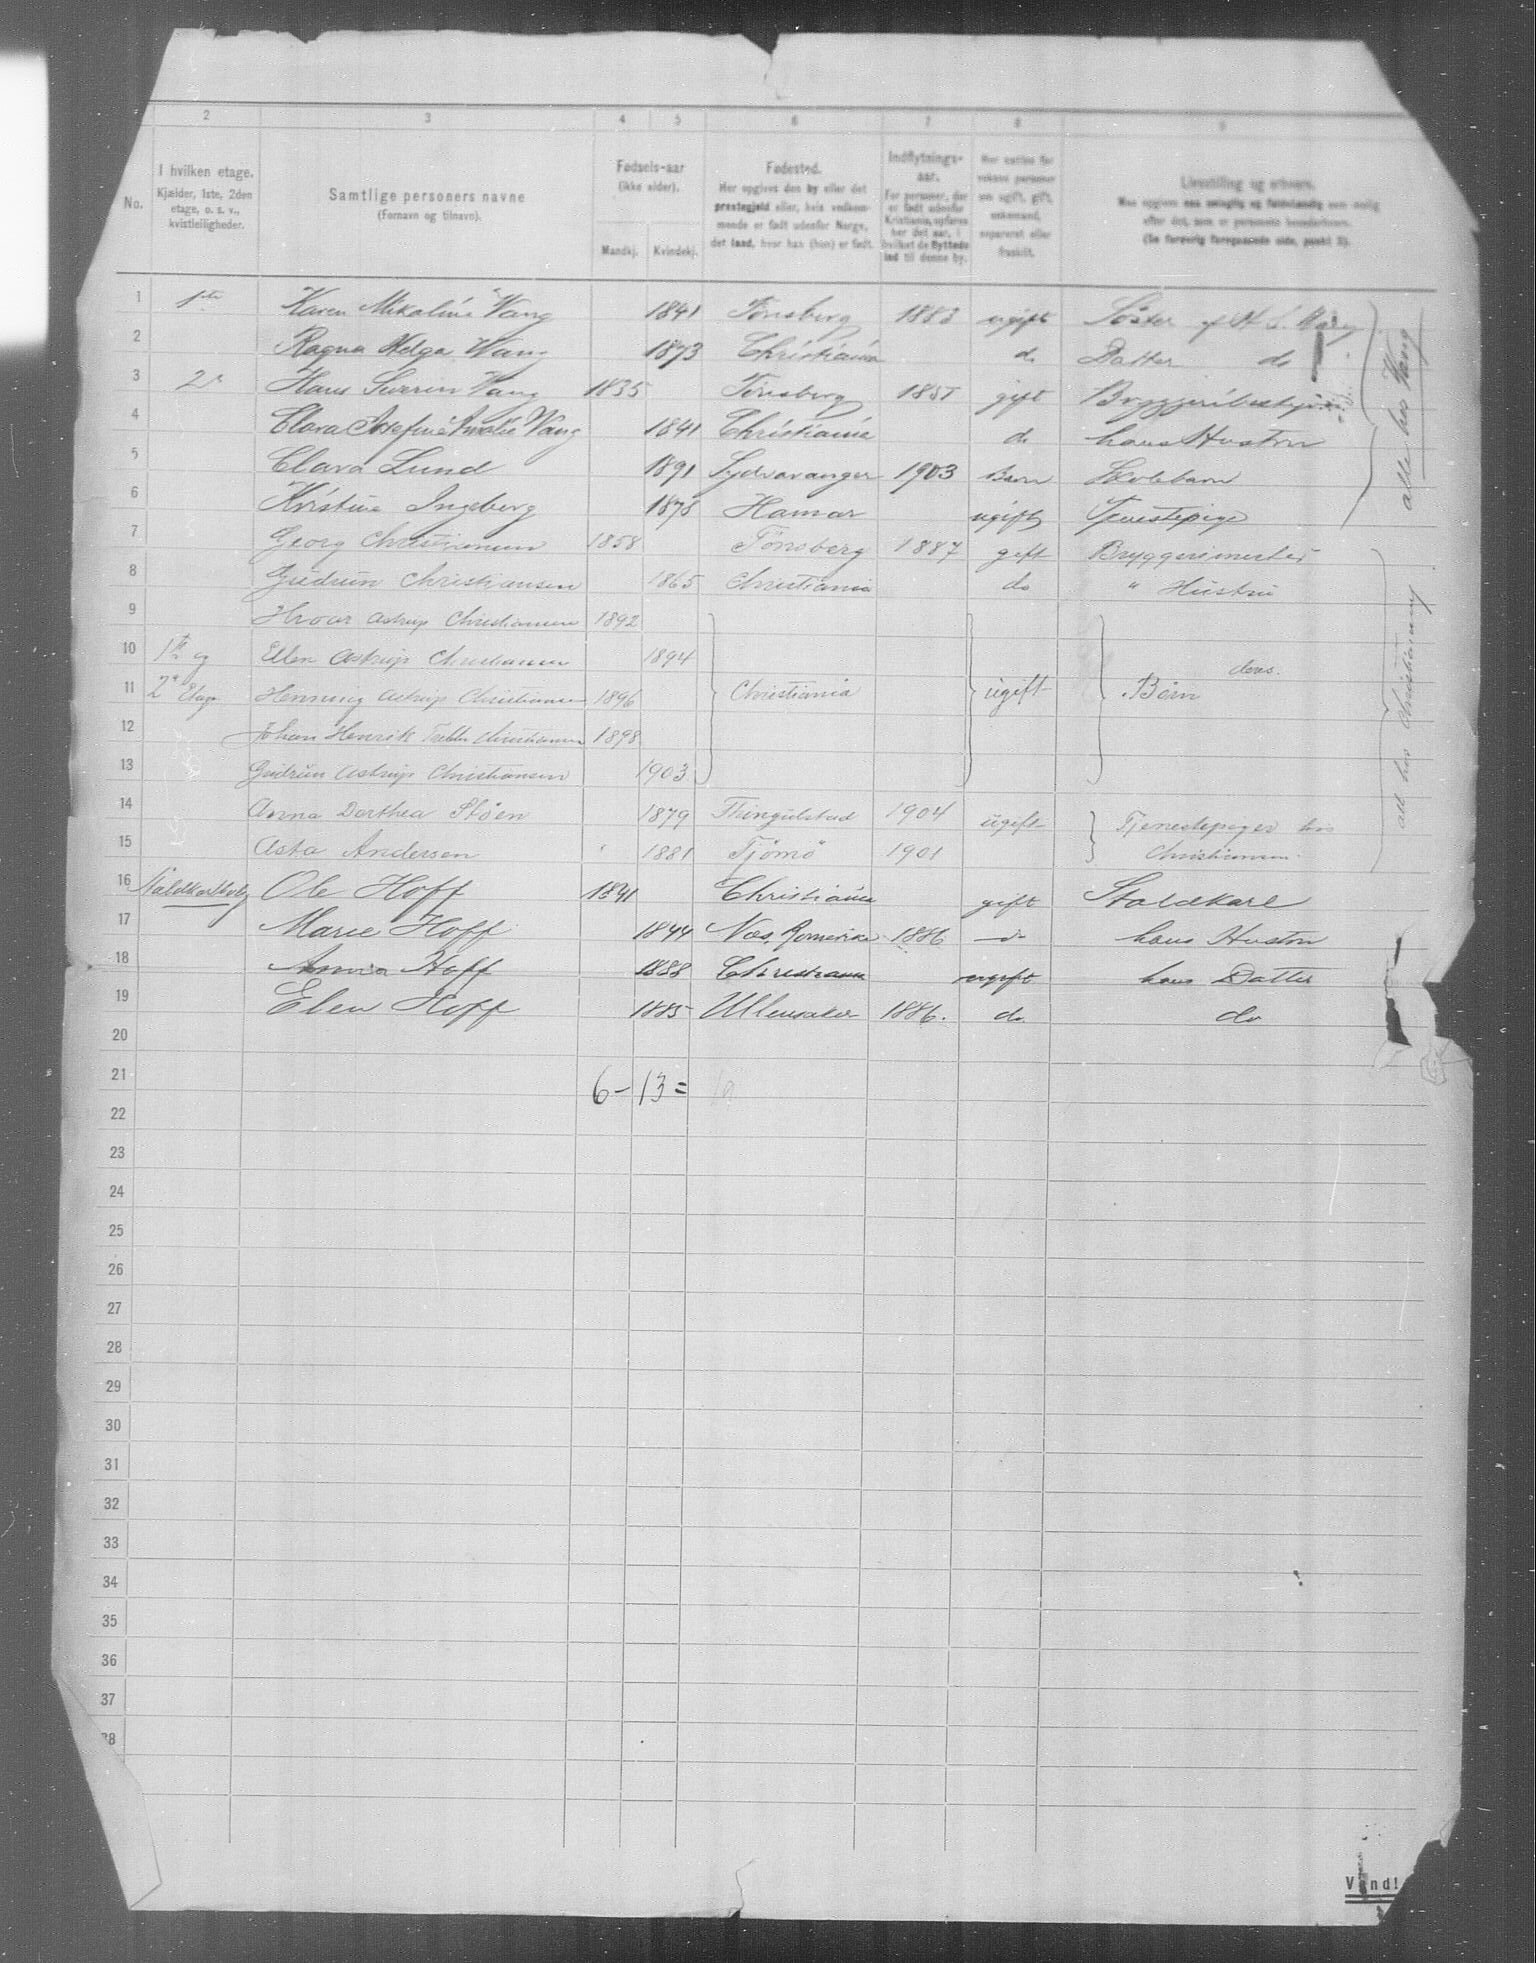 2 3 4 5 6 7 8 9
No.
I hvilken etage.
Kjælder, 1ste, 2den
etage, o. s. v.,
kvistleiligheder.
Samtlige personers navne
(Fornavn og tilnavn).
Fødsels-aar
(ikke alder).
Mandkj. Kvindekj.
Fødested.
Her opgives den by eller det
prestegjeld eller, hvis vedkom-
mende er født udenfor Norge,
det land, hvor han (hun) er født.
Indflytnings-
aar.
For personer, der
er født udenfor
Kristiania, opføres
her det aar, i
hvilket de flyttede
ind til denne by.
Her sættes for
voksne personer
om ugift, gift,
enkemand,
separeret eller
fraskilt.
Livsstilling og erhverv.
1 1ste Karen Mikaline Wang 1841 Tönsberg 1883 ugift Söster af H. S. Wang
2 Ragna Helga Wang 1873 Christiania d. Datter do
3 2n Hans Severin Wang 1835 Tönsberg 1857 gift Bryggeribestyrer
4 Clara Josefine Amalie Wang 1841 Christiania d. hans Hustru
5 Clara Lund 1891 Sydvaranger 1903 Barn Skolebarn
6 Kristine Ingeberg 1878 Hamar ugift Tjenestepige
alle hos Wang
7 Georg Christiansen 1858 Tönsberg 1887 gift Bryggerimester
8 Gudrun Christiansen 1865 Christiania do " Hustru
9 Hroar Astrup Christiansen 1892
10 1ste og Ellen Astrup Christiansen 1894
11 2n Etage Henning Astrup Christiansen 1896 Christiania ugift Börn deres.
12 Johan Henrik Christiansen 1898
13 Gudrun Astrup Christiansen 1903
14 Anna Dorthea Stöen 1879 Tingelstad 1904 ugift Tjenestepiger hos
15 Asta Andersen 1881 Tjömö 1901 Christiansen.
all hos Christiansen
16 Ole Hoff 1841 Christiania gift Staldkarl
17 Marie Hoff 1844 Næs, Romerike 1886 do hans Hustru
18 Anna Hoff 1888 Christiania ugift hans Datter
19 Elen Hoff 1885 Ullensaker 1886. do. do
20
21 6 - 13 = 19
22
23
24
25
26
27
28
29
30
31
32
33
34
35
36
37
38
Vend!